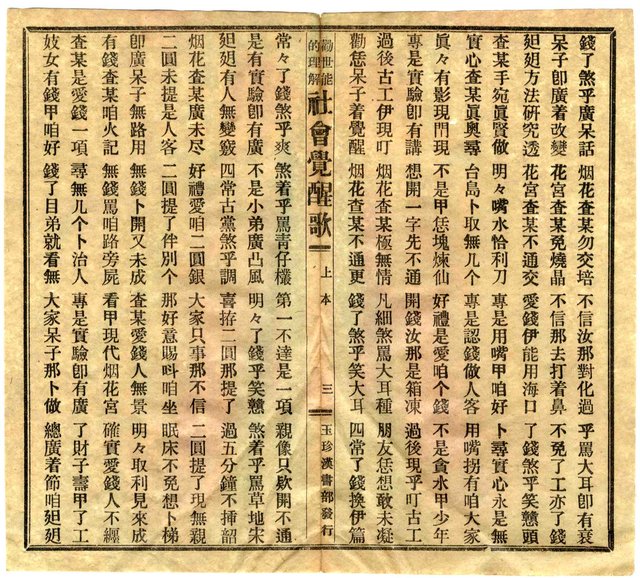 錢了煞乎廣呆話　烟花查某勿交培　不信汝那對化過　乎罵大耳卽有衰
呆子卽廣着改變　花宮查某免燒晶　不信那去打着鼻　不免了工亦了錢
妲妲方法研究透　花宮查某不通交　愛錢伊能用海口　了錢煞乎笑戇頭
查某手宛眞賢做　明々嘴水恰利刀　專是用嘴甲咱好　卜尋實心永是無
實心查某眞奧尋　台島卜取無几个　專是認錢做人客　用嘴拐有咱大家
眞々有影現門現　不是甲恁塊煉仙　好禮是愛咱个錢　不是貪水甲少年
專是實驗卽有講　想開一字先不通　開錢汝那是箱凍　過後現乎叮古工
過後古工伊現叮　烟花查某極無情　凡細煞罵大耳種　朋友恁想敢未凝
勸恁呆子着覺醒　烟花查某不通更　錢了煞乎笑大耳　四常了錢換伊篇
勸世能的理解　社會覺醒歌　上本　三　玉珍漢書部發行
常々了錢煞乎爽　煞着乎罵靑仔欉　第一不達是一項　親像只欵開不通
是有實驗卽有廣　不是小弟廣凸風　明々了錢乎笑戇　煞着乎罵草地宋
妲妲有人無變竅　四常古黨煞乎調　喜拵二圓那提了　過五分鐘不揷韶
烟花查某廣未尽　好禮愛咱二圓銀　大家只事那不信　二圓提了現無親
二圓未提是人客　二圓提了伴別个　那好意賜呌咱坐　眠床不免想卜梯
卽廣呆子無路用　無錢卜開又未成　查某愛錢人無景　明々取利見來成
有錢查某咱火記　無錢罵咱路旁屍　看甲現代烟花宮　確實愛錢人不纒
查某是愛錢一項　尋無几个卜治人　專是實驗卽有廣　了財子壽甲了工
妓女有錢甲咱好　錢了目弟就看無　大家呆子那卜做　總廣着節咱妲妲